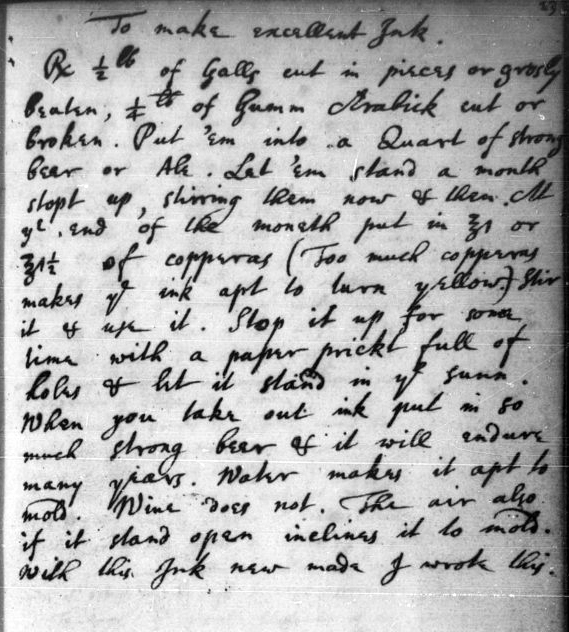 To make excellent Ink.
℞ ½ lb of Galls cut in pieces or grosly
beaten, ¼ lb of Gumm Arabick cut or
broken. Put 'em into a Quart of strong
beer or Ale. Let 'em stand a month
stopt up, stirring them now & then. At
yᵉ end of the moneth put in ℥1 or
℥1½ of copperas (Too much copperas
makes yᵉ ink apt to turn yellow.) Stir
it & use it. Stop it up for some
time with a paper prickt full of
holes & let it stand in yᵉ sunn.
When you take out ink put in so
much strong beer & it will endure
many years. Water makes it apt to
mold. Wine does not. The air also
if it stand open inclines it to mold.
With this Ink new made I wrote this.